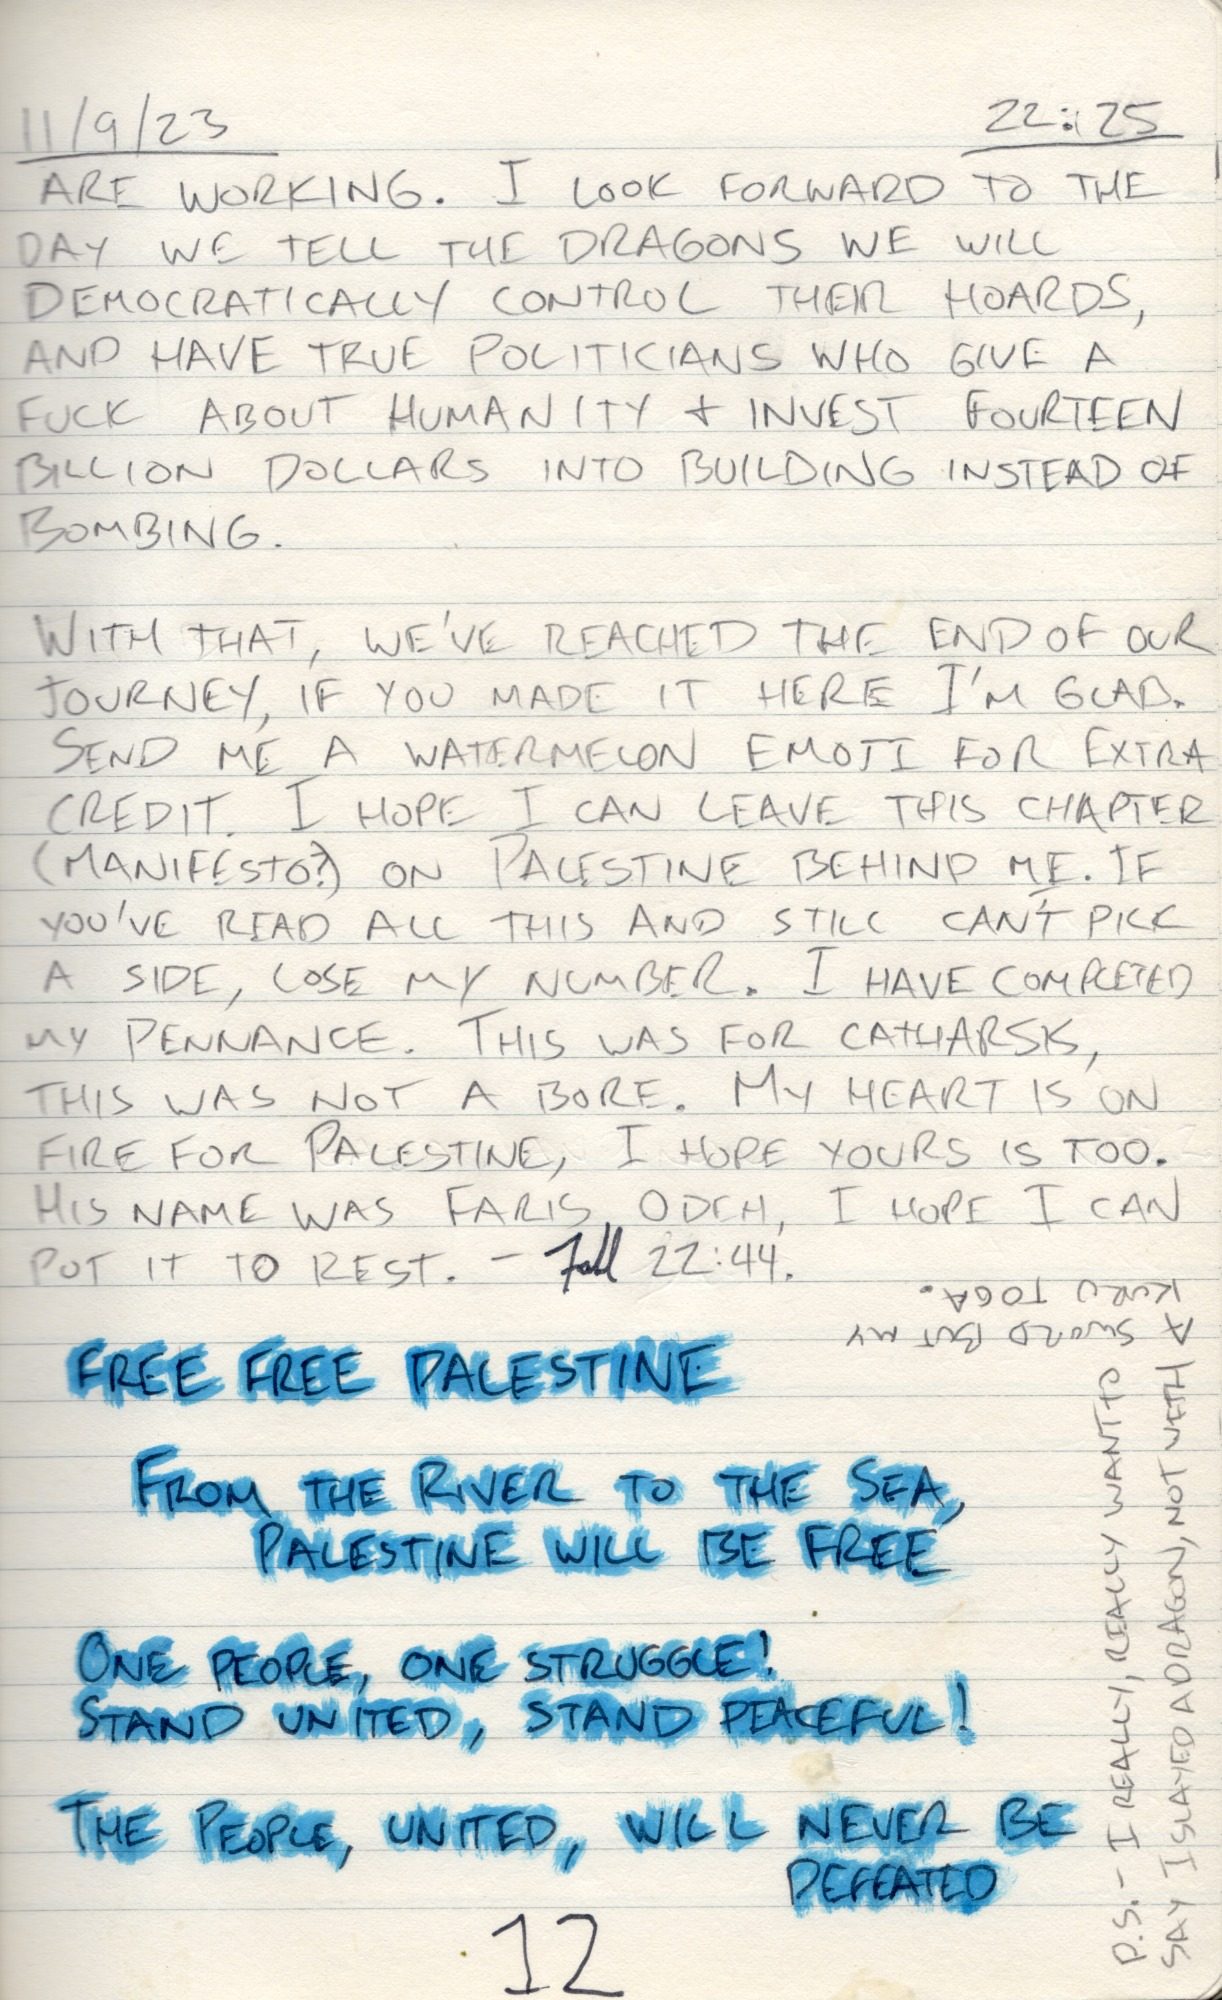 11/9/23 22:25
ARE WORKING. I LOOK FORWARD TO THE
DAY WE TELL THE DRAGONS WE WILL
DEMOCRATICALLY CONTROL THEIR HOARDS,
AND HAVE TRUE POLITICIANS WHO GIVE A
FUCK ABOUT HUMANITY + INVEST FOURTEEN
BILLION DOLLARS INTO BUILDING INSTEAD OF
BOMBING.
WITH THAT, WE'VE REACHED THE END OF OUR
JOURNEY, IF YOU MADE IT HERE I'M GLAD.
SEND ME A WATERMELON EMOJI FOR EXTRA
CREDIT. I HOPE I CAN LEAVE THIS CHAPTER
(MANIFESTO?) ON PALESTINE BEHIND ME. IF
YOU'VE READ ALL THIS AND STILL CAN'T PICK
A SIDE, LOSE MY NUMBER. I HAVE COMPLETED
MY PENNANCE. THIS WAS FOR CATHARSIS,
THIS WAS NOT A BORE. MY HEART IS ON
FIRE FOR PALESTINE, I HOPE YOURS IS TOO.
HIS NAME WAS FARIS ODEH, I HOPE I CAN
PUT IT TO REST. - 22:44.
FREE FREE PALESTINE
FROM THE RIVER TO THE SEA,
PALESTINE WILL BE FREE
ONE PEOPLE, ONE STRUGGLE!
STAND UNITED, STAND PEACEFUL!
THE PEOPLE, UNITED, WILL NEVER BE
DEFEATED
12
P.S. - I REALLY, REALLY WANT TO
SAY I SLAYED A DRAGON, NOT WITH
A SWORD BUT MY
KURU TOGA.